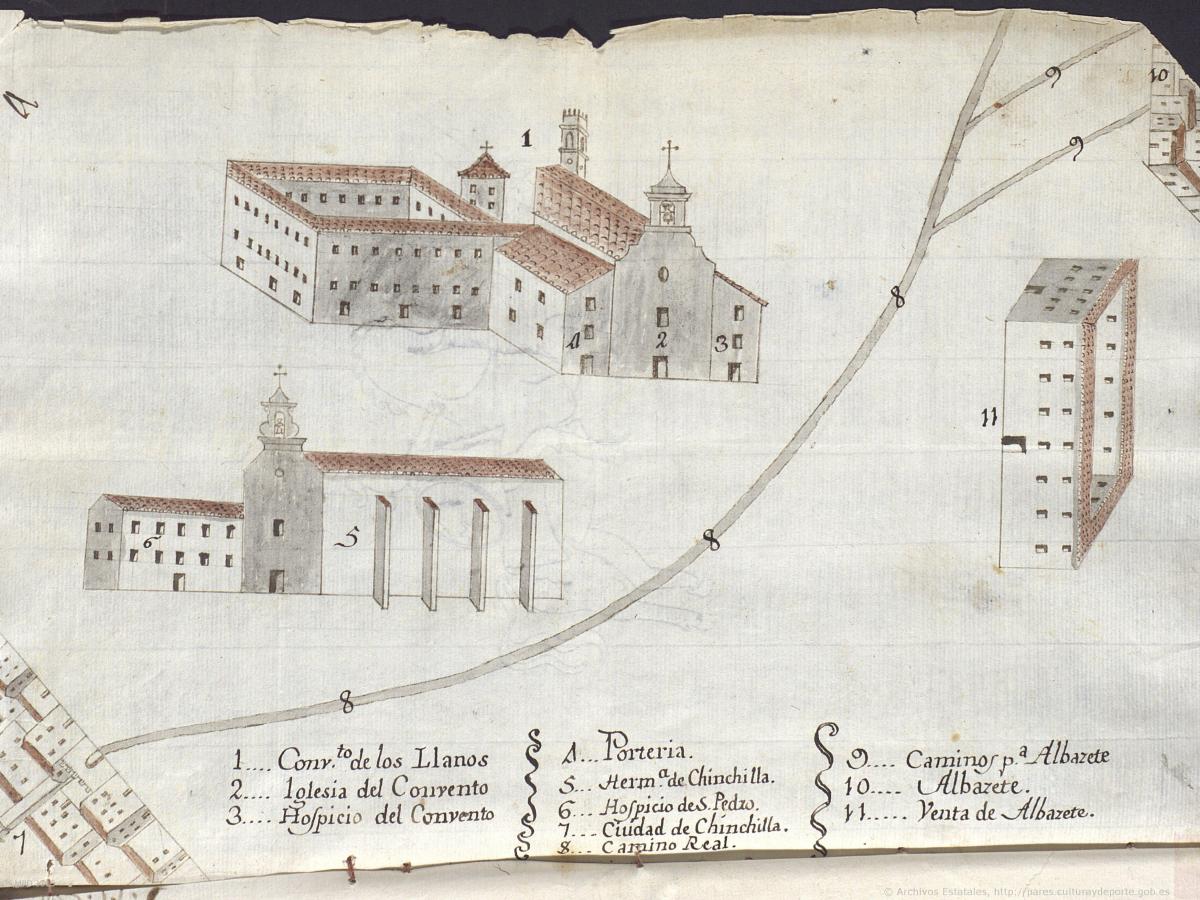 A
1
9
10
9
8
4
2
3
11
6
5
8
8
7
1.... Conv.to de los Llanos
2.... Iglesia del Convento
3.... Hospicio del Convento
4... Porteria.
5... Herm.a de Chinchilla.
6... Hospicio de S. Pedro.
7... Ciudad de Chinchilla.
8... Camino Real.
9.... Caminos p.a Albazete
10.... Albazete.
11..... Venta de Albazete.
© Archivos Estatales, http://pares.culturaydeporte.gob.es